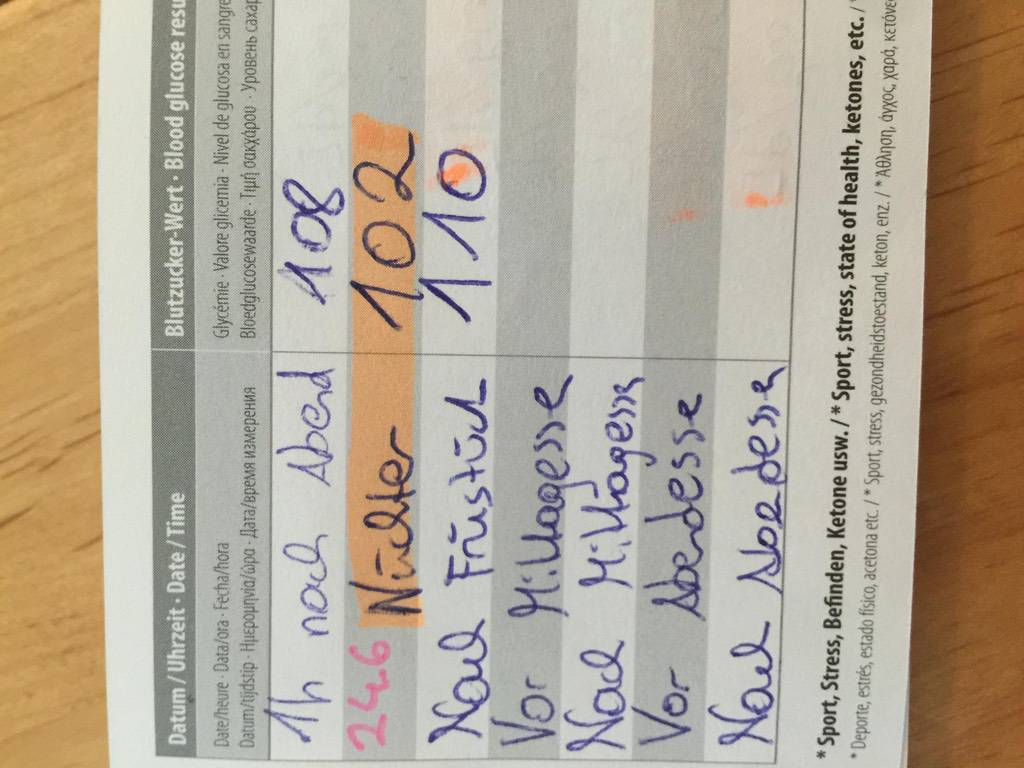 Datum / Uhrzeit · Date / Time Blutzucker-Wert · Blood glucose resu
Date/heure · Data/ora · Fecha/hora Glycémie · Valore glicemia · Nivel de glucosa en sangre
Datum/tijdstip · Ημερομηνία/ώρα · Дата/время измерения Bloedglucosewaarde · Τιμή σακχάρου · Уровень сахар
1h nach Abend 108
24.6 Nüchter 102
Nach Früstück 110
Vor Mittagesse
Nach Mittagessn
Vor Abendesse
Nach Abendessn
* Sport, Stress, Befinden, Ketone usw. / * Sport, stress, state of health, ketones, etc. /
* Deporte, estrés, estado físico, acetona etc. / * Sport, stress, gezondheidstoestand, keton, enz. / * Άθληση, άγχος, χαρά, κετόνε